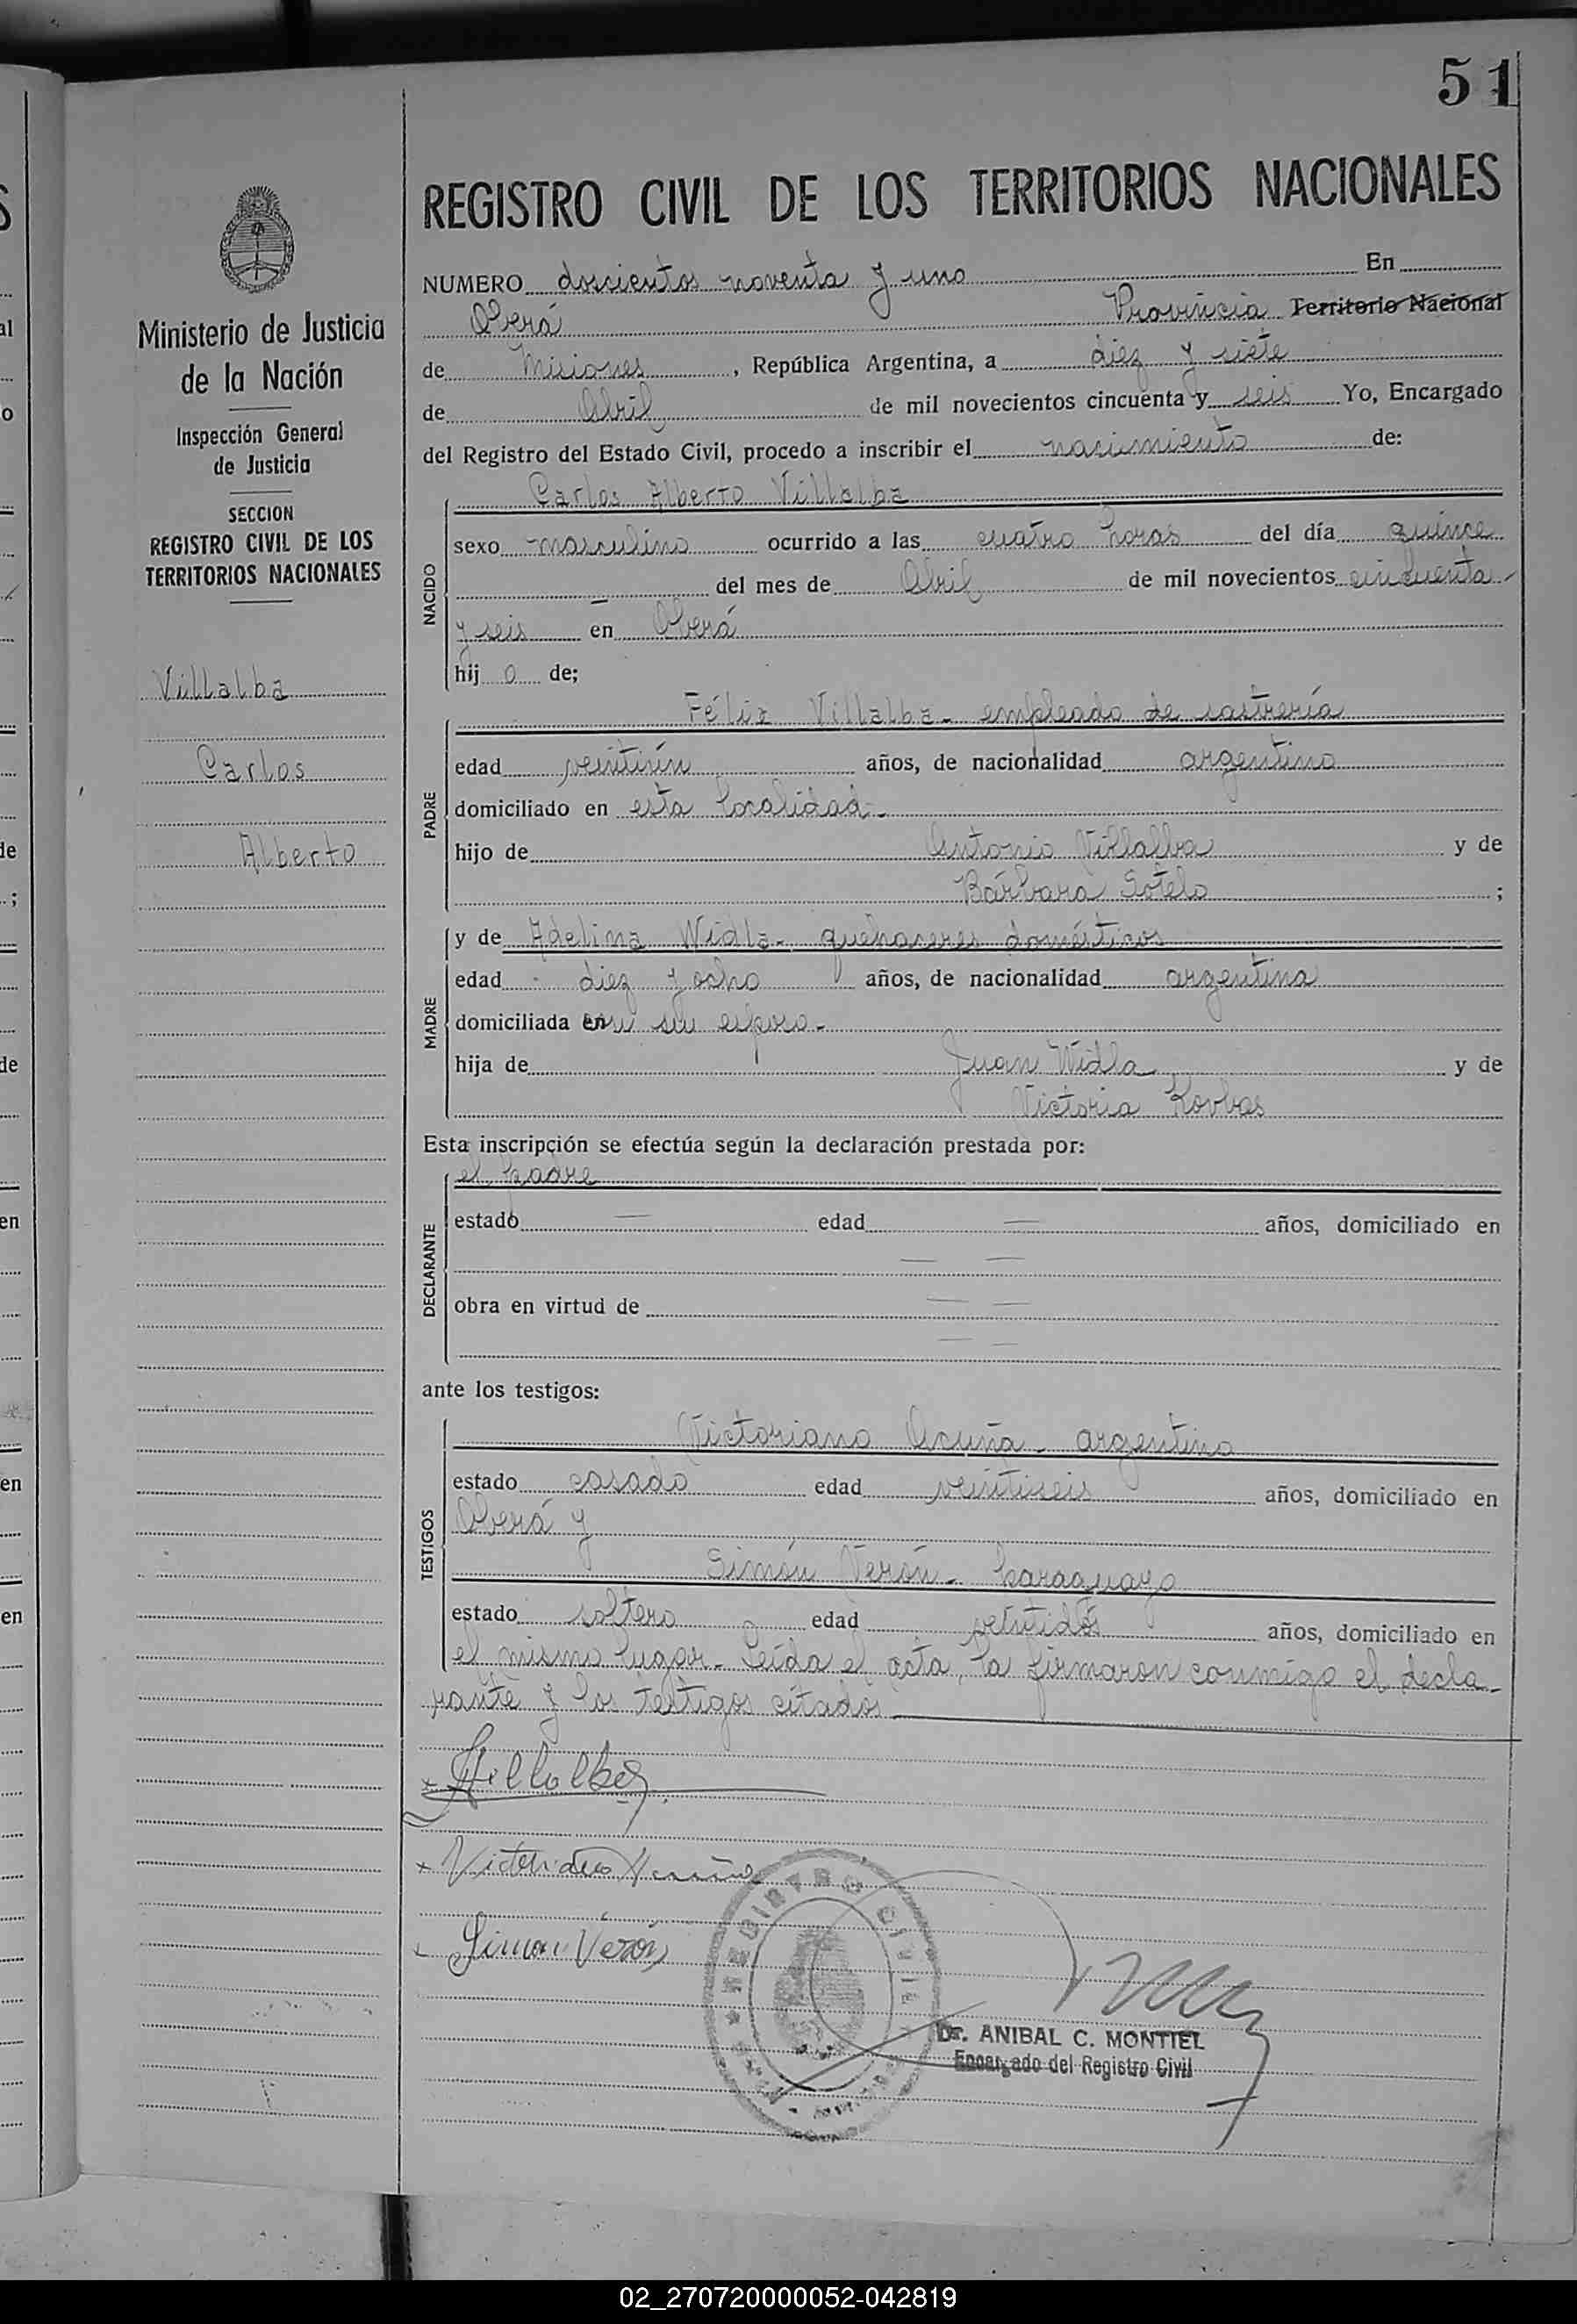 51
REGISTRO CIVIL DE LOS TERRITORIOS NACIONALES
Ministerio de Justicia
de la Nación
Inspección General
de Justicia
SECCION
REGISTRO CIVIL DE LOS
TERRITORIOS NACIONALES
Villalba
Carlos
Alberto
NUMERO doscientos noventa y uno En
Oberá Provincia Territorio Nacional
de Misiones, República Argentina, a diez y siete
de Abril de mil novecientos cincuenta y seis Yo, Encargado
del Registro del Estado Civil, procedo a inscribir el nacimiento de:
NACIDO
Carlos Alberto Villalba
sexo masculino ocurrido a las cuatro horas del día quince
— del mes de Abril de mil novecientos cincuenta
y seis en Oberá
hij o de;
PADRE
Félix Villalba - empleado de sastrería
edad veintiún años, de nacionalidad argentino
domiciliado en esta localidad.-
hijo de Antonio Villalba y de
Bárbara Sotelo ;
MADRE
y de Adelina Widla - quehaceres domésticos
edad diez y ocho años, de nacionalidad argentina
domiciliada con su esposo.-
hija de Juan Widla y de
Victoria Korbas
Esta inscripción se efectúa según la declaración prestada por:
DECLARANTE
el padre
estado — edad — años, domiciliado en
— —
obra en virtud de — —
— —
ante los testigos:
TESTIGOS
Victoriano Acuña - argentino
estado casado edad veintiseis años, domiciliado en
Oberá y
Simón Verón - paraguayo
estado soltero edad veintidós años, domiciliado en
el mismo lugar. Leída el acta, la firmaron conmigo el decla-
rante y los testigos citados
x Villalba
x Victoriano Acuña
x Simon Verón
REGISTRO CIVIL
Dr. ANIBAL C. MONTIEL
Encargado del Registro Civil
02_270720000052-042819